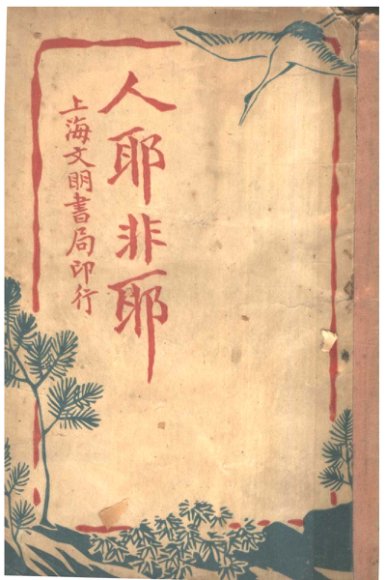 人耶非耶
上海文明書局印行